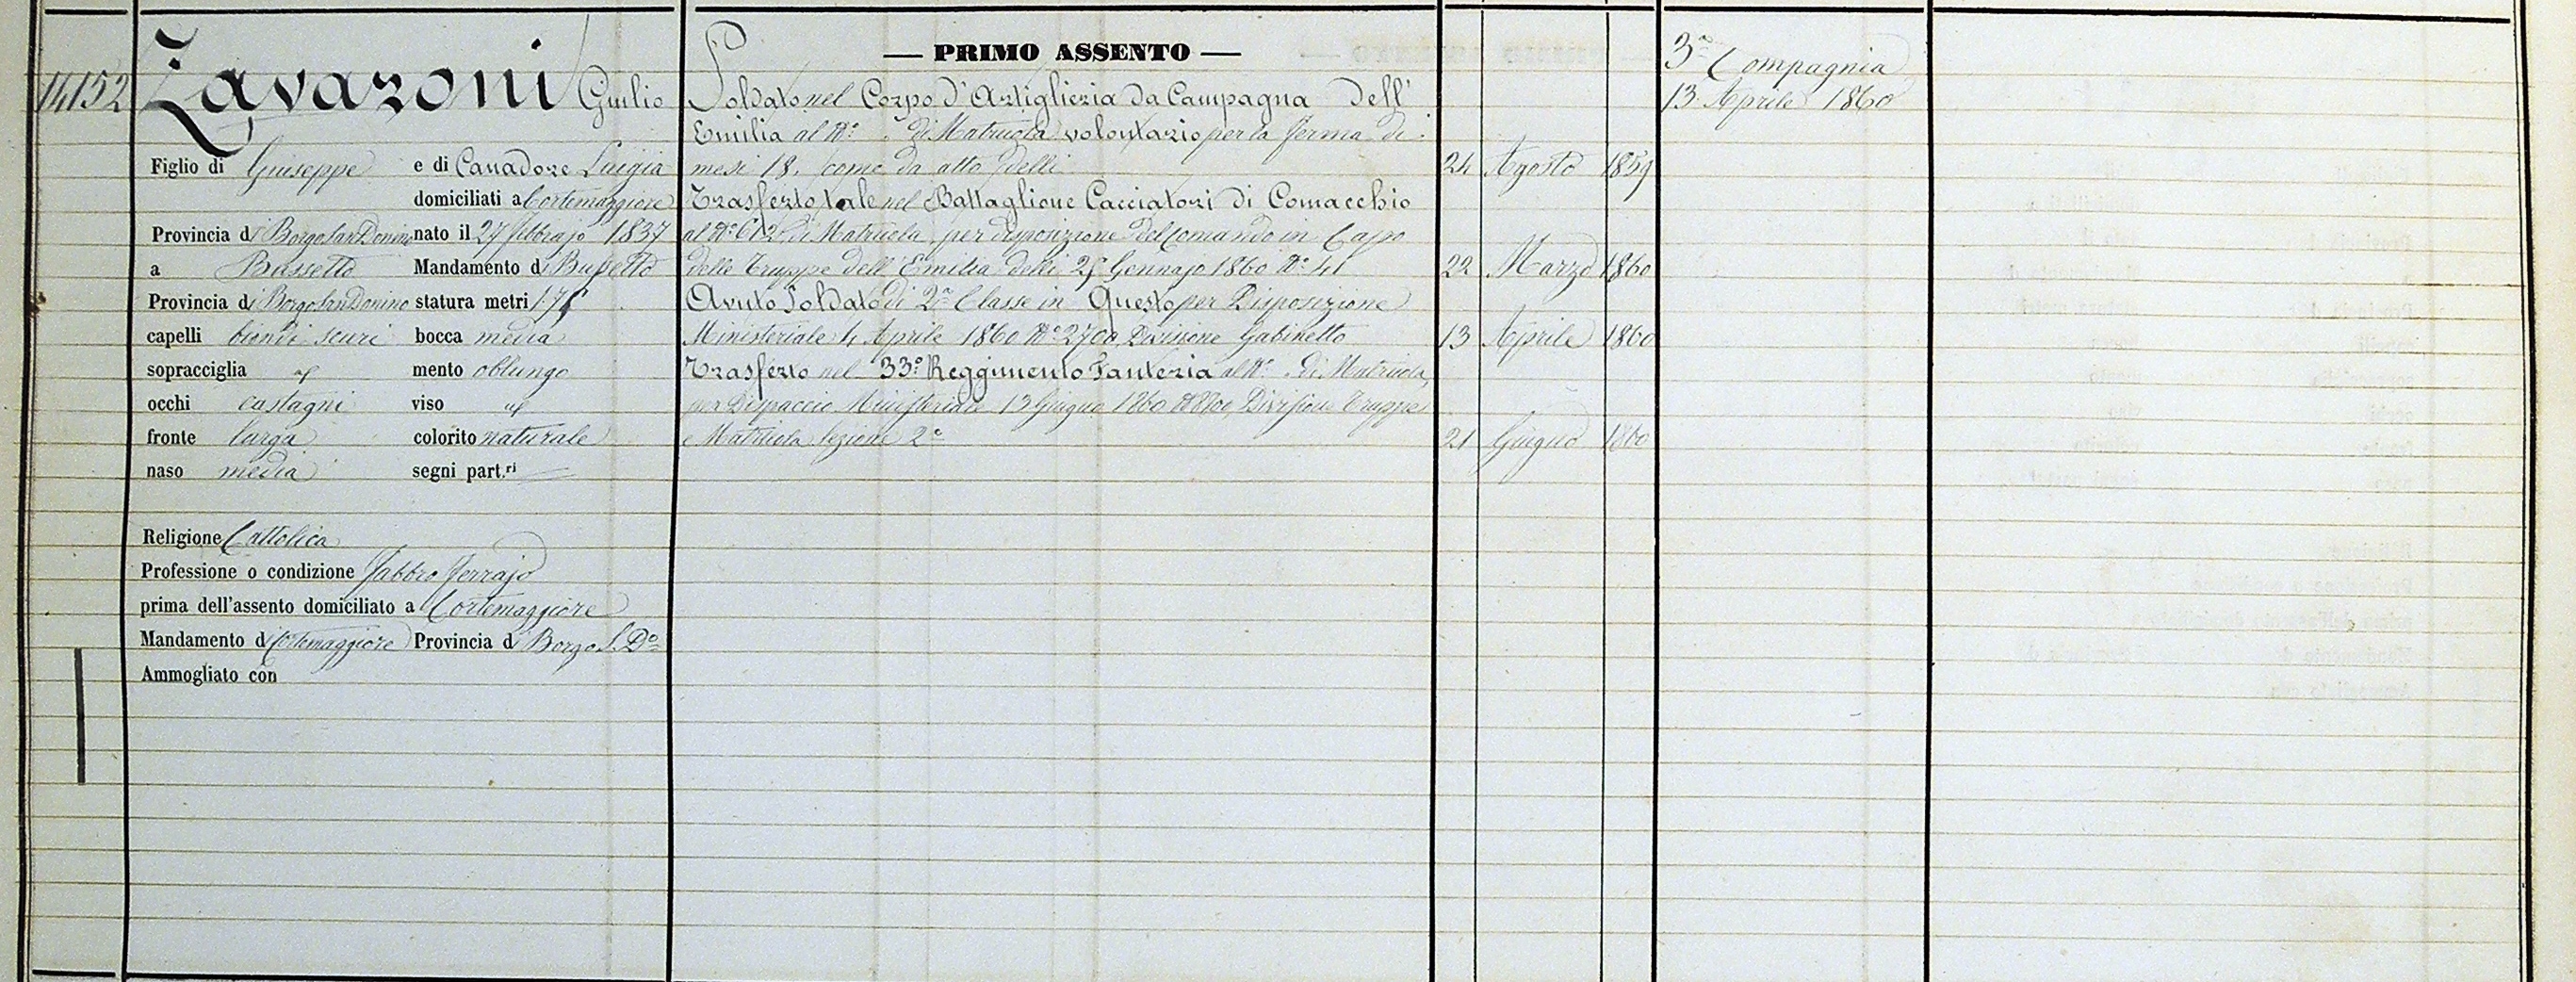 14152
Zavaroni Giulio
Figlio di Giuseppe e di Canadore Luigia
domiciliati a Cortemaggiore
Provincia di Borgo San Donino nato il 27 febbrajo 1837
a Bussetto Mandamento di Bussetto
Provincia di Borgo San Donino statura metri 1.7
capelli biondi scuri bocca media
sopracciglia id mento oblungo
occhi castagni viso id
fronte larga colorito naturale
naso media segni part.ri
Religione Cattolica
Professione o condizione fabbro ferrajo
prima dell'assento domiciliato a Cortemaggiore
Mandamento di Cortemaggiore Provincia di Borgo S. Do
Ammogliato con
— PRIMO ASSENTO —
Soldato nel Corpo d'Artiglieria da Campagna dell'
Emilia al No. di Matricola volontario per la ferma di
mesi 18, come da atto delli 24 Agosto 1859
Trasferto tale nel Battaglione Cacciatori di Comacchio
al No 612 di Matricola per disposizione del Comando in Capo
delle Truppe dell'Emilia delli 25 Gennajo 1860 No 41 22 Marzo 1860
Avuto Soldato di 2a Classe in Questo per Disposizione
Ministeriale 4 Aprile 1860 No 2700, Divisione Gabinetto 13 Aprile 1860
Trasferto nel 33o Reggimento Fanteria al No. di Matricola,
per Dispaccio Ministeriale 13 Giugno 1860 Divisione Truppe
e Matricola Sezione 2a 21 Giugno 1860
3a Compagnia
13 Aprile 1860